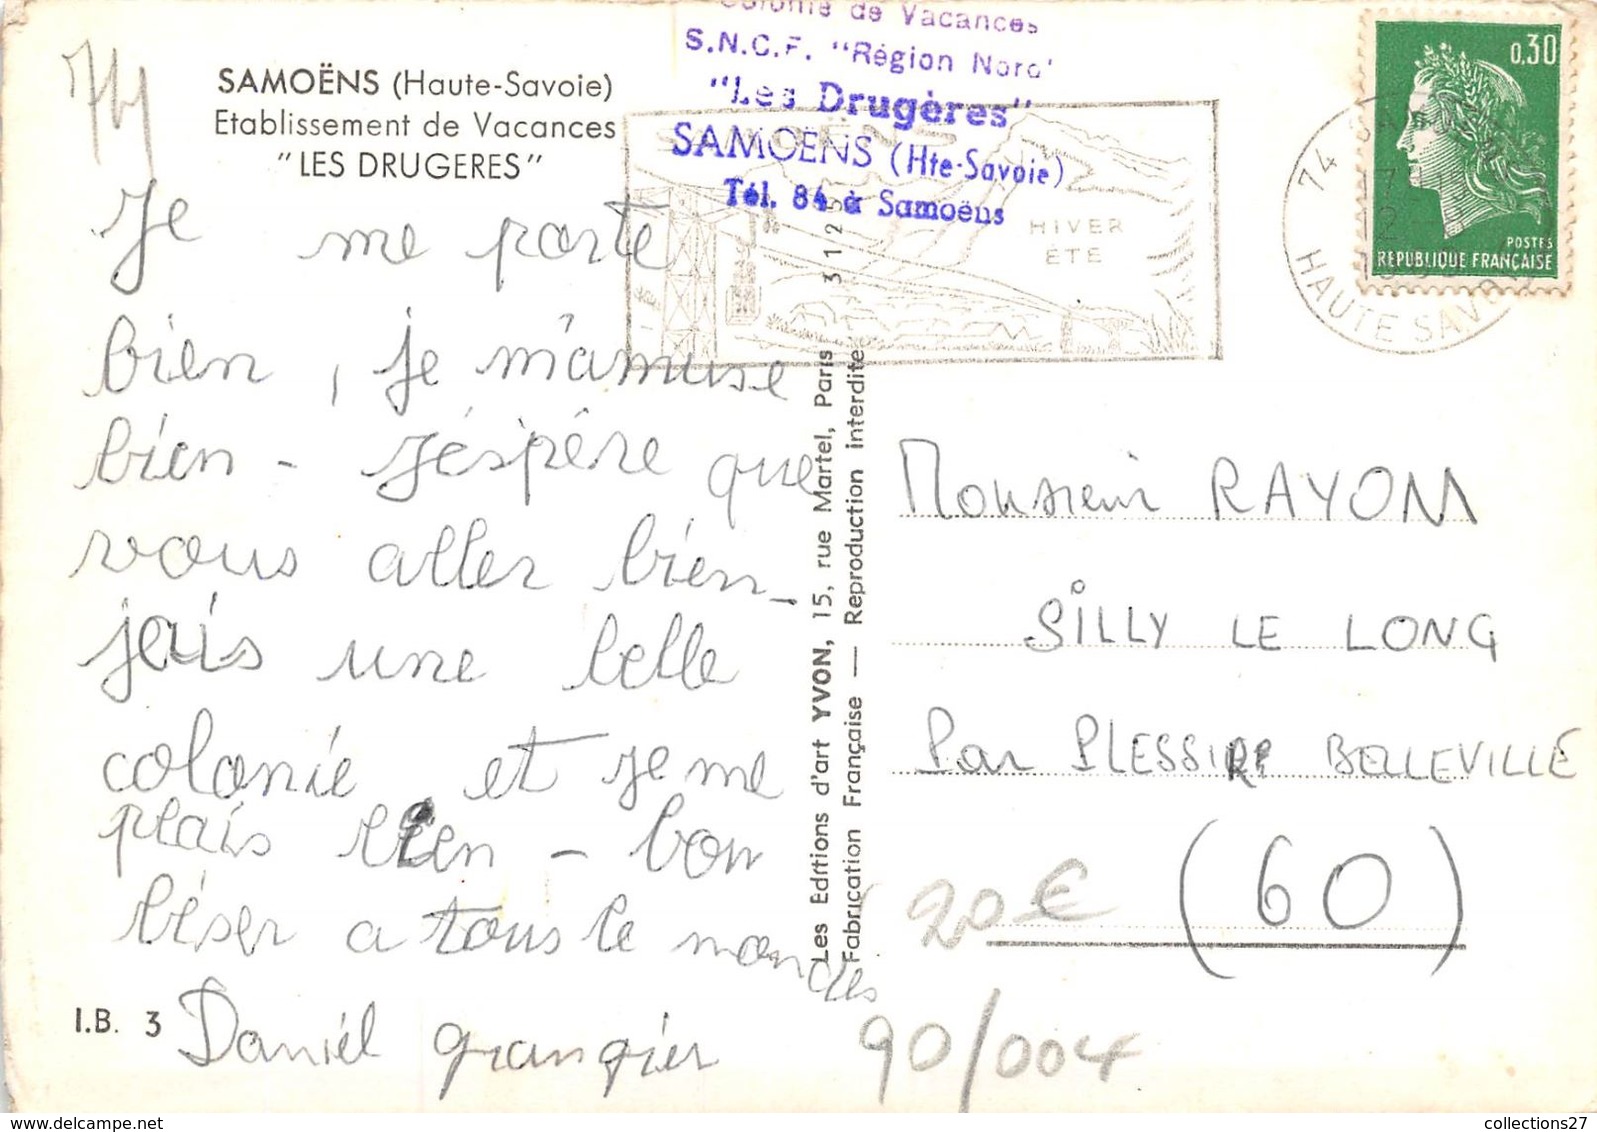 74
SAMOËNS (Haute-Savoie)
Etablissement de Vacances
"LES DRUGERES"
Colonie de Vacances
S.N.C.F. "Région Nord"
"Les Drugères"
SAMOËNS (Hte-Savoie)
Tél. 84 à Samoëns
HIVER
ÉTÉ
0,30
POSTES
REPUBLIQUE FRANÇAISE
74
HAUTE SAVOIE
Je me porte
bien, je m'amuse
bien - J'éspère que
vous aller bien -
jais une belle
colonie et je me
plais bien - bon
béser a tous le mondes
Daniél grangier
I.B. 3
Les Editions d'art YVON, 15, rue Martel, Paris 3 12
Fabrication Française — Reproduction interdite
Monsieur RAYOM
SILLY LE LONG
Par PLESSIRE BELLEVILLE
(60)
20 €
90/004
collections27